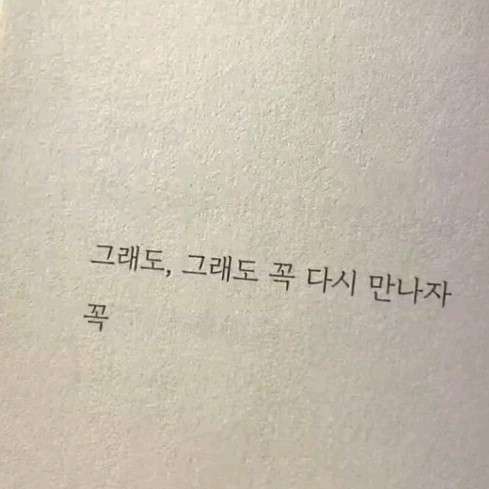 그래도, 그래도 꼭 다시 만나자
꼭